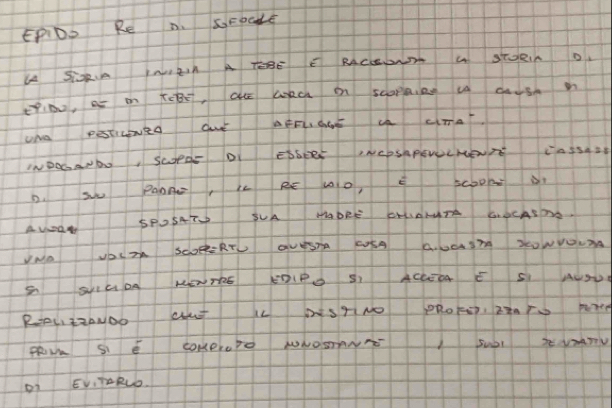 EPIDO RE DI SOFOCLE
LA STORIA INIZIA A TEBE E RACCONTA LA STORIA DI
EPIDO, RE DI TEBE, CHE CERCA DI SCOPRIRE LA CAUSA DI
UNA PESTILENZA CHE AFFLIGGE LA CITTA'.
INDAGANDO, SCOPRE DI ESSERE INCOSAPEVOLMENTE
DI SUO PADRE, IL RE LAIO, E SCOPRE DI
AVERE SPOSATO SUA MADRE CHIAMATA GIOCASTA.
UNA VOLTA SCOPERTO QUESTA COSA GIOCASTA SCONVOLTA
SI SUICIDA MENTRE EDIPO SI ACCECA E SI
REALIZZANDO CHE IL DESTINO PROFETIZZATO
PRIMA SI È COMPIUTO NONOSTANTE I SUOI TENTATIVI
DI EVITARLO.